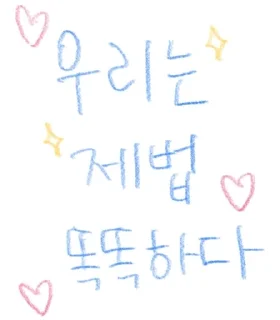 우리는
제법
똑똑하다